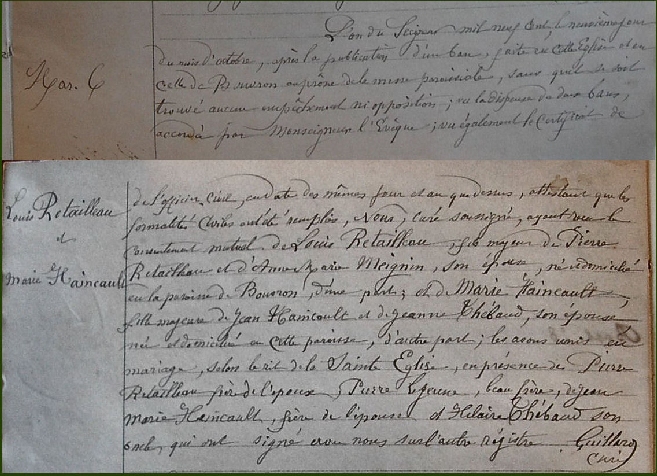 L'an du Seigneur mil neuf cent le neuvième jour
Mar. 6
du mois d'octobre, après la publication d'un ban, faite en cette Eglise et en
celle de Bouvron au prône de la messe paroissiale, sans qu'il se soit
trouvé aucun empêchement ni opposition ; vu la dispense de deux bans,
accordé par Monseigneur l'Evêque ; vu également le certificat de
de l'officier civil, en date des mêmes jour et an que dessus, attestant que les
Louis Retailleau
formalités civiles ont été remplies, Nous, curé soussigné, ayant reçu le
et
consentement mutuel de Louis Retailleau, fils majeur de Pierre
Marie Haincault
Retailleau et d'Anne Marie Meignin, son épouse, né et domicilié
en la paroisse de Bouvron, d'une part ; et de Marie Haincault,
fille majeure de Jean Haincault et de Jeanne Thébaud, son épouse
née et domiciliée en cette paroisse, d'autre part ; les avons unis en
mariage, selon le rit de la Sainte Eglise, en présence de Pierre
Retailleau frère de l'époux, Pierre Lejeune, beau frère, de Jean
Marie Haincault, frère de l'épouse et Hilaire Thébaud son
oncle, qui ont signé avec nous sur l'autre régistre Guillero
Curé